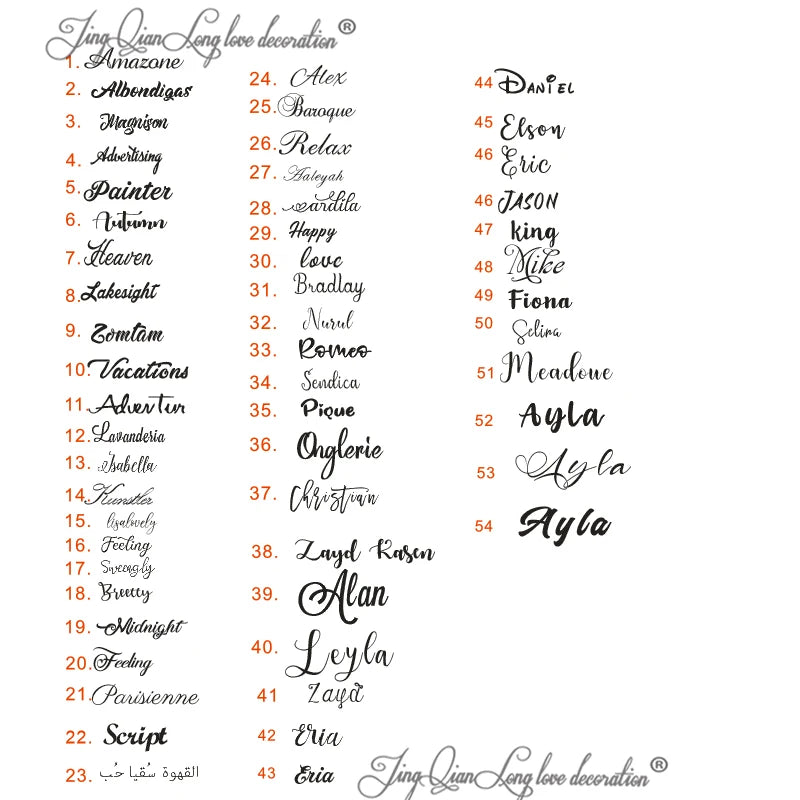 JingQianLong love decoration®
1. Amazone
2. Albondigas
3. Magnison
4. Advertising
5. Painter
6. Autumn
7. Heaven
8. Lakesight
9. Zomtam
10. Vacations
11. Adventur
12. Lavanderia
13. Isabella
14. Kunstler
15. lisalovely
16. Feeling
17. Sweengly
18. Breetty
19. Midnight
20. Feeling
21. Parisienne
22. Script
23. القهوة سُقيا حُب
24. Alex
25. Baroque
26. Relax
27. Aaleyah
28. Sardila
29. Happy
30. love
31. Bradlay
32. Nurul
33. Romeo
34. Sendica
35. Pique
36. Onglerie
37. Christian
38. Zayd Rasen
39. Alan
40. Leyla
41 Zaya
42 Eria
43 Eria
44 DANIEL
45 Elson
46 Eric
46 JASON
47 king
48 Mike
49 Fiona
50 Selina
51 Meadowe
52 Ayla
53 Ayla
54 Ayla
JingQianLong love decoration®